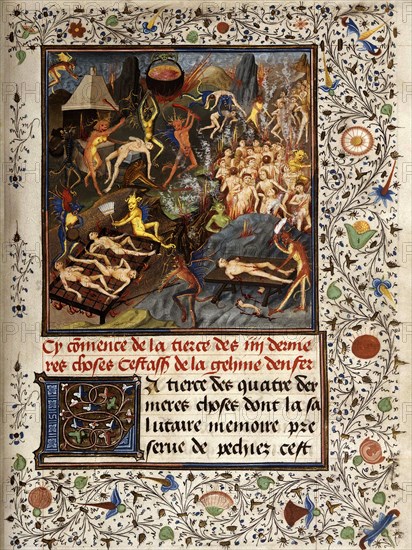 Cy cõmence de la tierce des iiij dernie
res choses Cestass̃ de la gehine denfer
La tierce des quatre der
nieres choses dont la sa
lutaire memoire pre
serve de pechiez cest